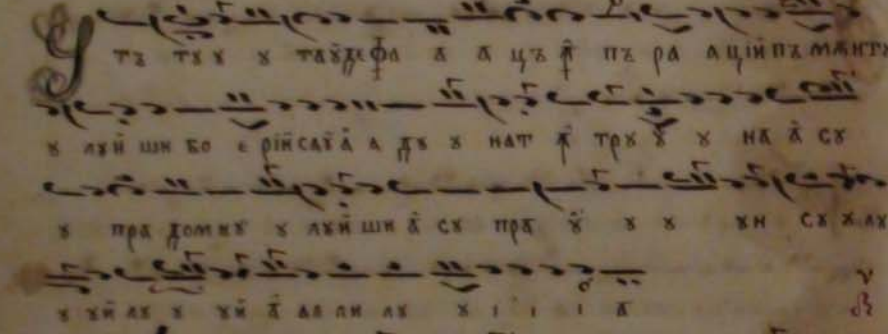 Стъ тꙋ ꙋ таꙋ де фа а а цъ ꙟ пъ ра а ції пъ мѫнтꙋ
ꙋ лꙋй ши бо е рїй саꙋ а а дꙋ ꙋ нат ꙟ трꙋ ꙋ ꙋ на а сꙋ
ꙋ пра домнꙋ ꙋ лꙋй ши а сꙋ пра ꙋ ꙋ ꙋ ꙋн сꙋ ꙋ лꙋ
ꙋ ꙋй лꙋ ꙋ ꙋй а ал ли лꙋ ꙋ і і і а